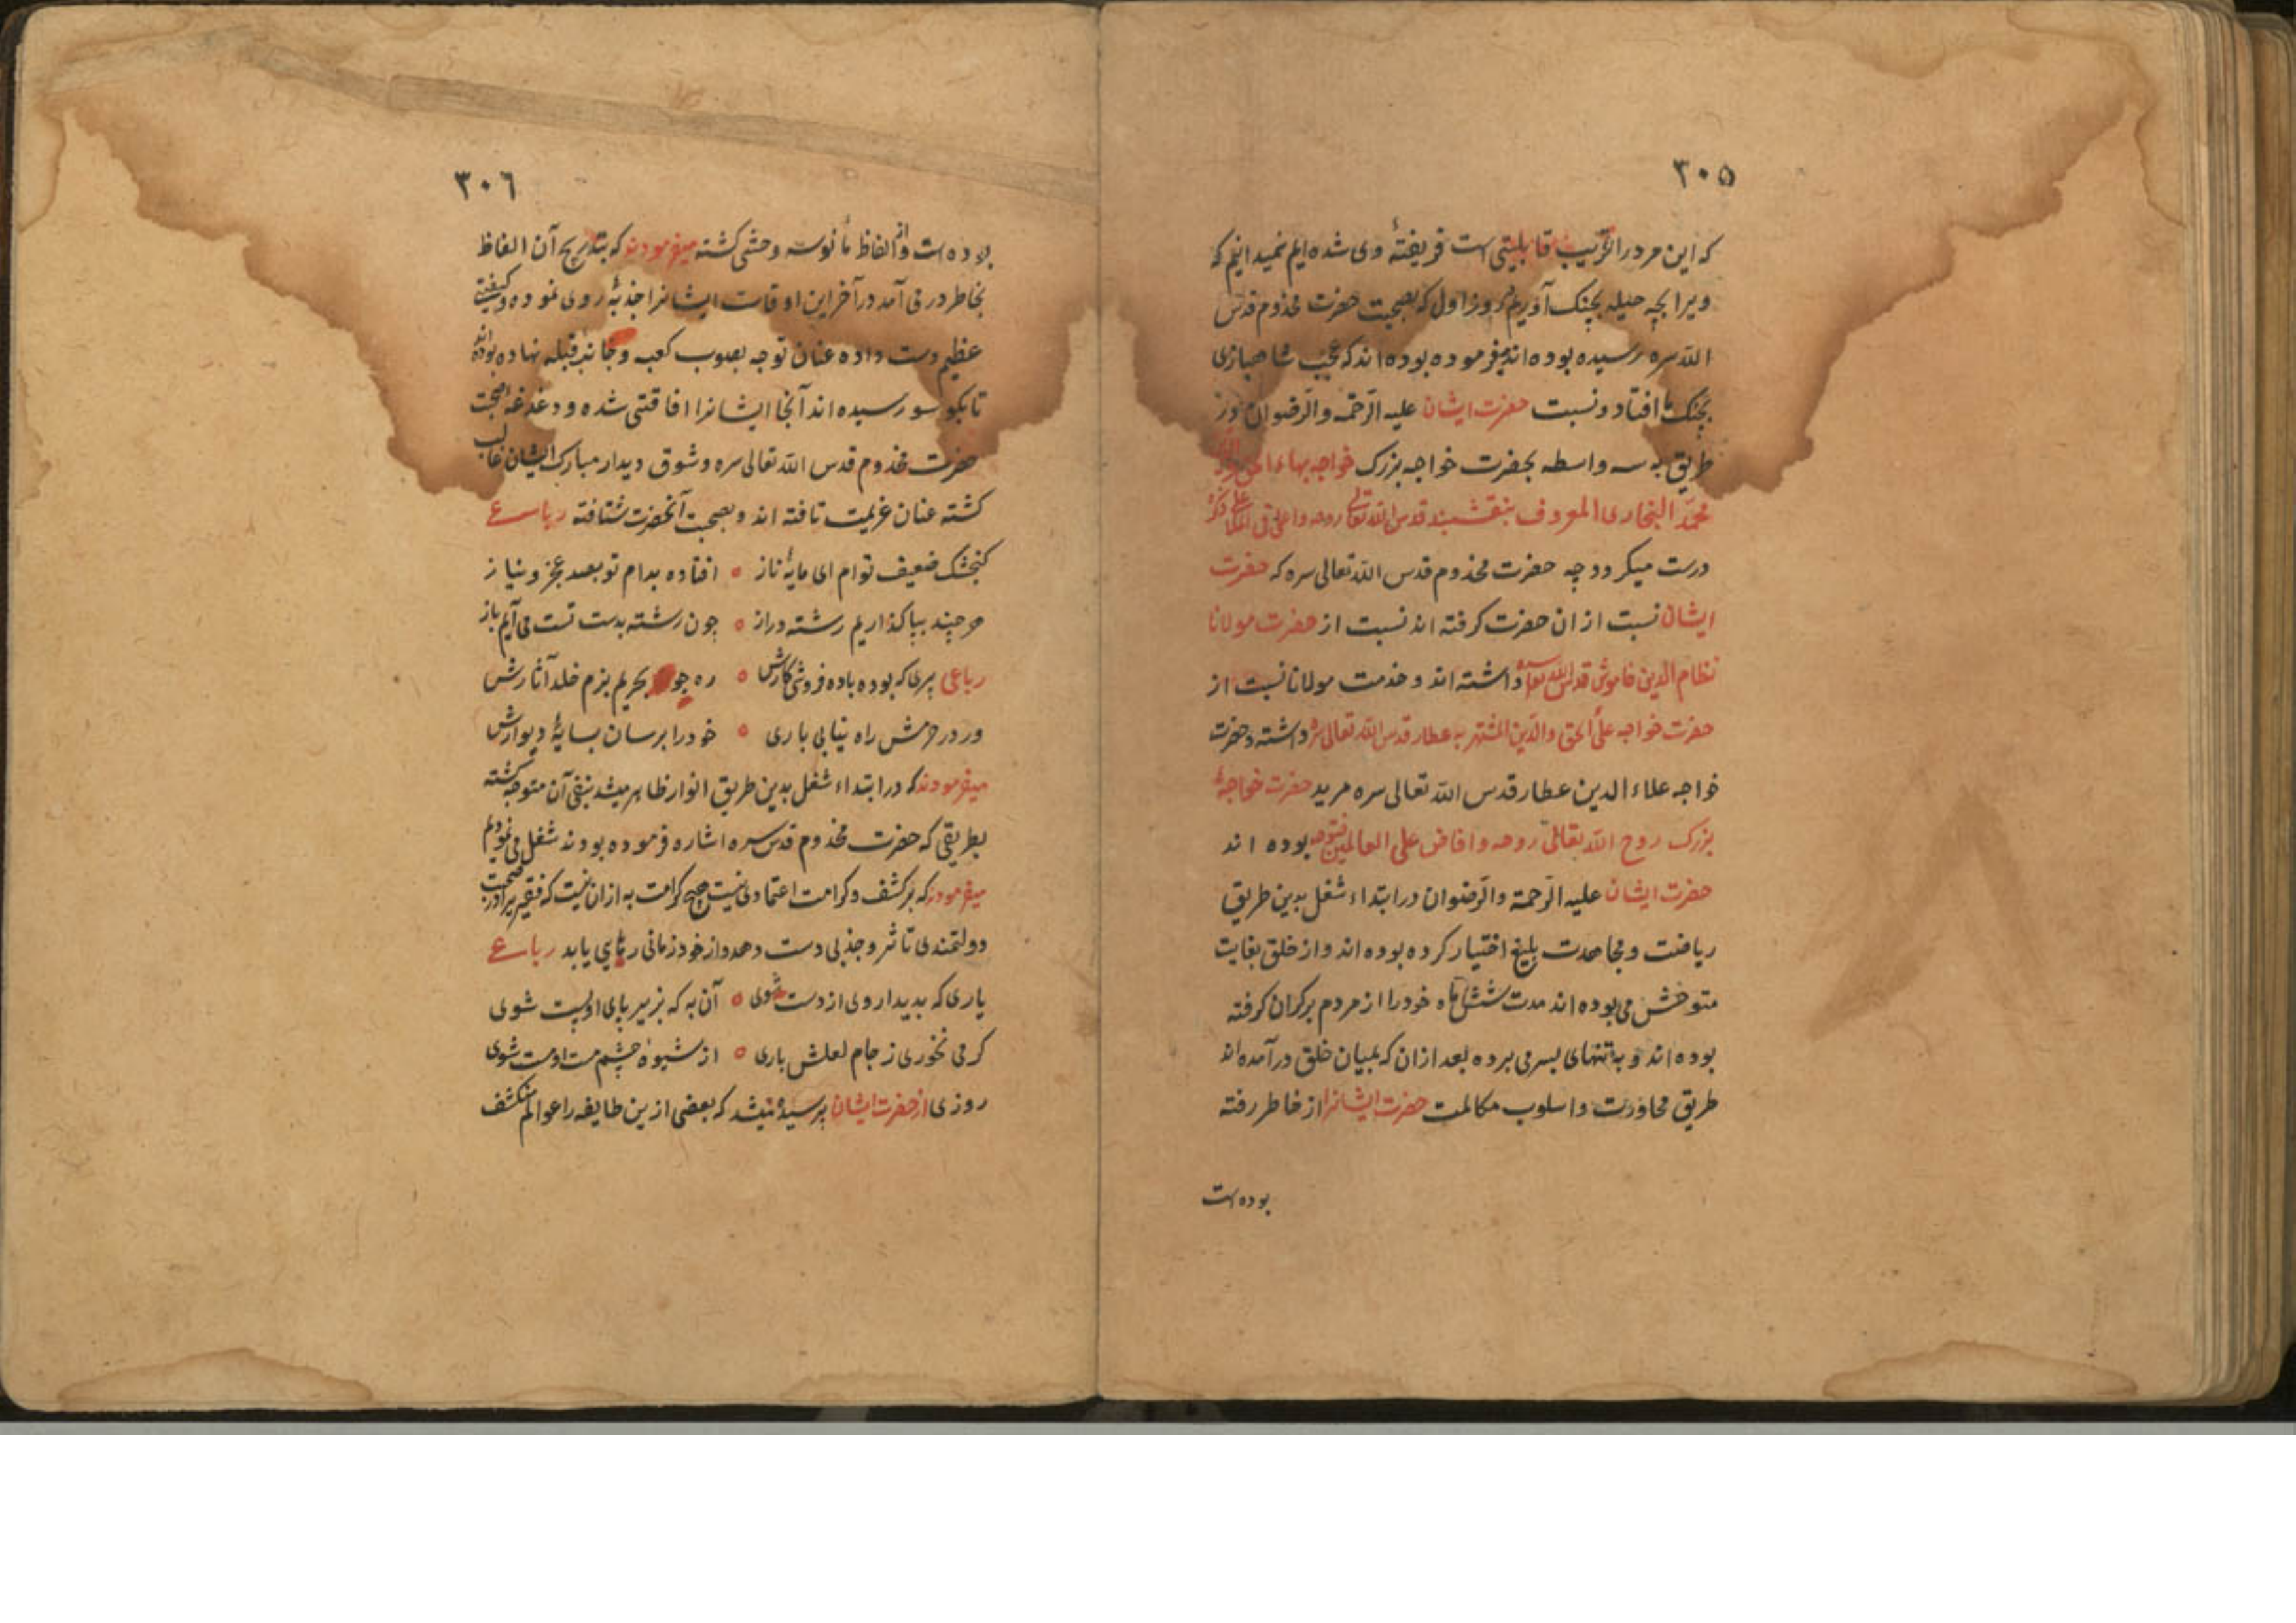 ۳۰۵
که این مرد را غریب قابلیتی است فریفتهٔ وی شده ایم نمیدانیم که
ویرا بچه حیله بچنک آوریم روز اول که بصحبت حضرت مخدوم قدس
الله سره رسیده بوده اند میفرموده بوده اند که عجب شاهبازی
بچنک ما افتاد ونسبت حضرت ایشان علیه الرحمه والرضوان درز
طریق به سه واسطه بحضرت خواجه بزرک خواجه بهاء الحق والدین
محمد البخاری المعروف بنقشبند قدس الله تعالی روحه واعلی فی الملا ذکره
درست میکردد چه حضرت مخدوم قدس الله تعالی سره که حضرت
ایشان نسبت ازان حضرت کرفته اند نسبت از حضرت مولانا
نظام الدین خاموش قدس الله تعالی سره داشته اند وخدمت مولانا نسبت از
حضرت خواجه علی الحق والدین المشتهر به عطار قدس الله تعالی سره داشته وحضرت
خواجه علاء الدین عطار قدس الله تعالی سره مرید حضرت خواجهٔ
بزرک روح الله تعالی روحه وافاض علی العالمین فتوحه بوده اند
حضرت ایشان علیه الرحمة والرضوان در ابتداء شغل بدین طریق
ریاضت ومجاهدت بلیغ اختیار کرده بوده اند واز خلق بغایت
متوحش می بوده اند مدت شش ماه خود را از مردم برکران کرفته
بوده اند و به تنهای بسر می برده بعد ازان که بمیان خلق درآمده اند
طریق محاورت واسلوب مکالمت حضرت ایشانرا از خاطر رفته
بوده است
۳۰۶
بوده است واز الفاظ مأنوسه وحشی کشته میفرمودند که بتدریج آن الفاظ
بخاطر درمی آمد در آخر این اوقات ایشانرا جذبهٔ روی نموده وکیفیتی
عظیم دست داده عنان توجه بصوب کعبه وجانب قبله نهاده بوده اند
تا بکوسور رسیده اند آنجا ایشانرا افاقتی شده ودغدغه صحبت
حضرت مخدوم قدس الله تعالی سره وشوق دیدار مبارک ایشان غالب
کشته عنان عزیمت تافته اند وبصحبت آنحضرت شتافته رباعی
کنجشک ضعیف توام ای مایهٔ ناز ه افتاده بدام تو بصد عجز ونیاز
هرچند بپا کذاریم رشته دراز ه چون رشته بدست تست می آیم باز
رباعی پیری که بوده باده فروشی کارش ه ره جو بحریم بزم خلد آثارش
ور در حرمش راه نیابی باری ه خود را برسان بسایهٔ دیوارش
میفرمودند که در ابتداء شغل بدین طریق انوار ظاهر میشد بنفی آن متوجه کشته
بطریقی که حضرت مخدوم قدس سره اشاره فرموده بودند شغل می نمودیم
میفرمودند که برکشف وکرامت اعتمادی نیست هیچ کرامت به ازان نیست که فقیر برا در صحبت
دولتمندی تاثر وجذبی دست دهد واز خود زمانی رهای یابد رباعی
یاری که بدیدار وی از دست شوی ه آن به که بزیر پای او پست شوی
کر می نخوری ز جام لعلش باری ه از شیوهٔ چشم مست او مست شوی
روزی از حضرت ایشان پرسیده شد که بعضی ازین طایفه را عوالم منکشف